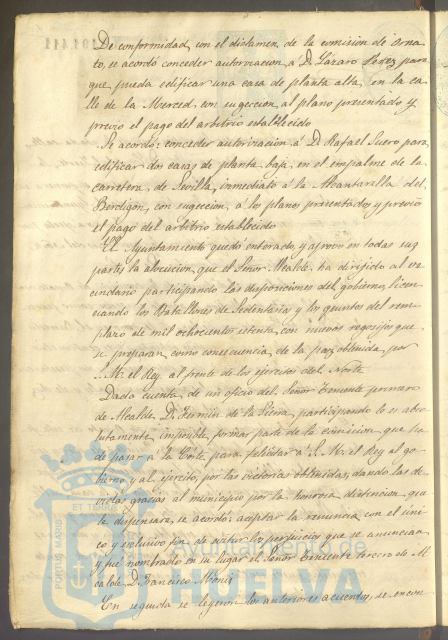 De conformidad, con el dictamen, de la comision de Orna-
to, se acordó conceder autorizacion á D. Lázaro Lopez para
que pueda edificar una casa de planta alta, en la ca-
lle de la Merced, con sugeccion al plano presentado y
previo el pago del arbitrio establecido
Se acordó: conceder autorizacion á D. Rafael Suero para
edificar dos casas de planta baja, en el empalme de la
carretera, de Sevilla, inmediato á la Alcantarilla del
Berdigon, con sugeccion, á los planos presentados y previo
el pago del arbitrio establecido
El Ayuntamiento quedó enterado, y aprovó en todas sus
partes la alocucion, que el Señor Alcalde, ha dirijido al ve-
cindario participando las disposiciones del gobierno, licen-
ciando los Batallones de Sedentarios y los quintos del rem-
plazo de mil ochocientos setenta, con nuevos regocijos que
se preparan, como consecuencia, de la paz obtenida, por
S. M. el Rey al frente de los ejercitos del Norte
Dada cuenta, de un oficio del Señor Teniente primero
de Alcalde, D. Fermin de la Sierra, participando le es abso-
lutamente, imposible, formar parte de la comision que ha
de pasar á la Corte, para felicitar á S. M. el Rey al go-
bierno y al ejercito, por las victorias obtenidas, dando las de-
vidas gracias al municipio por la honrosa distincion, que
le dispensara, se acordó: aceptar la renuncia con el úni-
co y esclusivo fin de evitar los perjuicios que se anuncian
y fué nombrado en su lugar el Señor Teniente tercero de Al-
calde D. Francisco
En seguida se leyeron los anteriores acuerdos, se encon
PORTUS MARIS ET TERRÆ
Ayuntamiento de
HUELVA